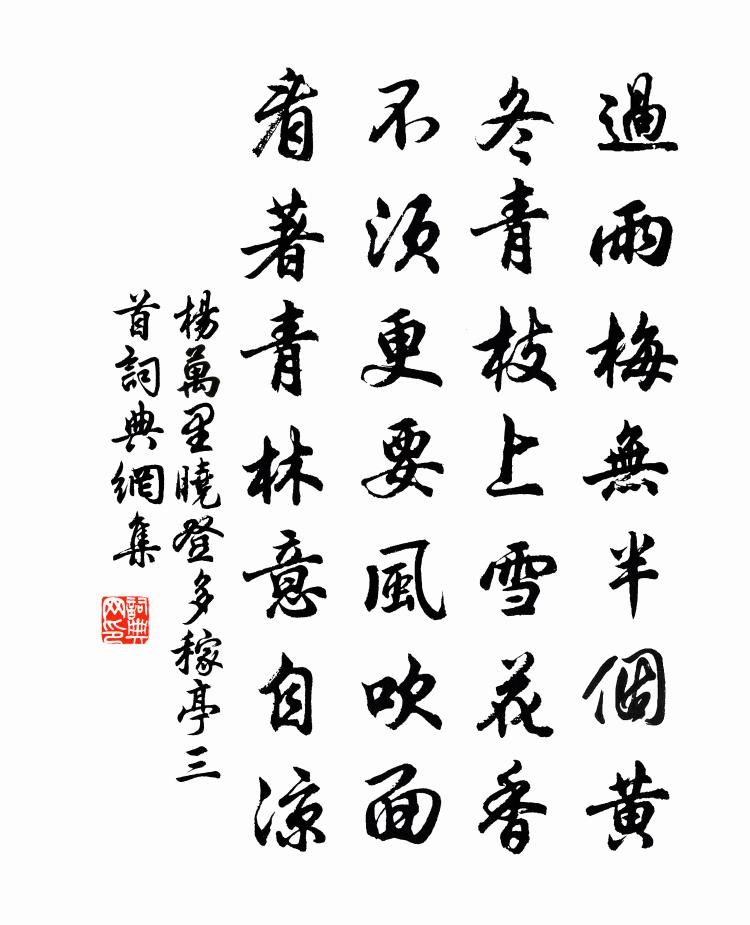 過雨梅無半個黃
冬青枝上雪花香
不須更要風吹面
看著青林意自涼
楊萬里曉登多稼亭三
首詞典網集
詞典
网印